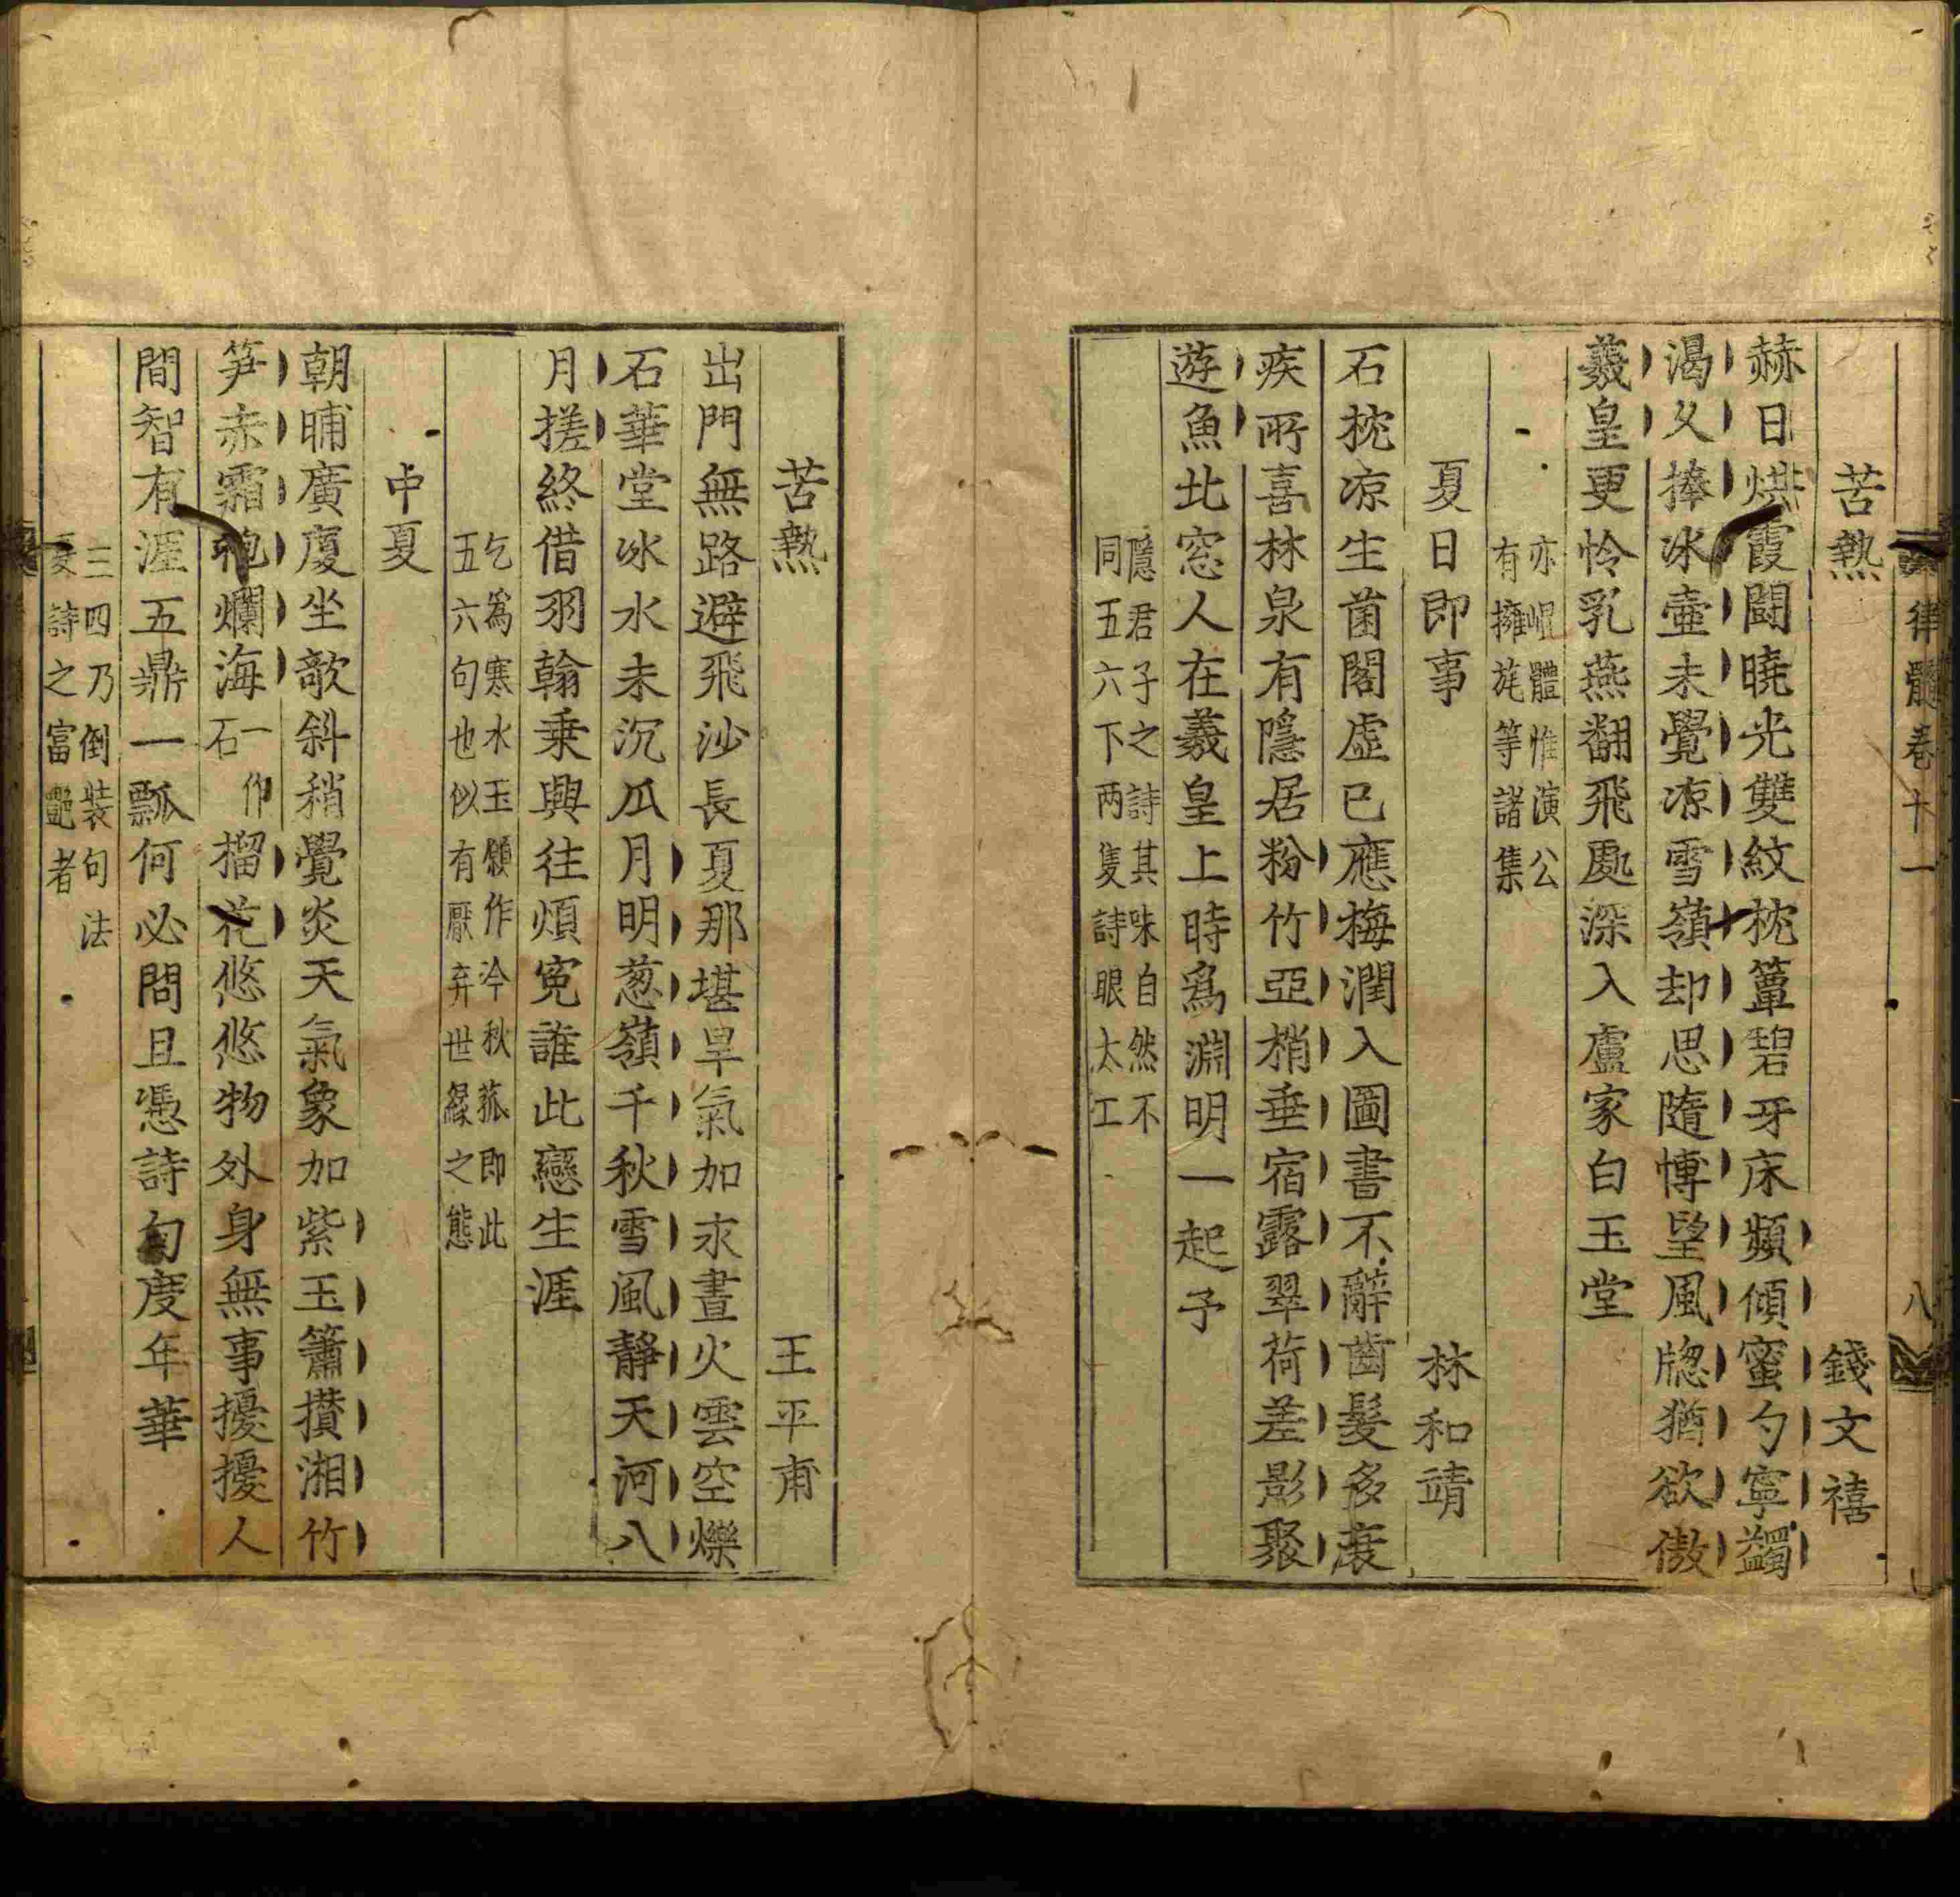 律髓卷十一 八
苦熱 錢文禧
赫日烘霞鬪曉光雙紋枕簟碧牙床頻傾蜜勺寧蠲
渴久捧冰壺未覺凉雪嶺却思隨博望風牕猶欲傲
羲皇更怜乳燕翻飛處深入盧家白玉堂
亦崐體惟演公
有擁旄等諸集
夏日即事 林和靖
石枕凉生菌閣虛已應梅潤入圖書不辭齒髮多衰
疾所喜林泉有隱居粉竹亞梢垂宿露翠荷差影聚
遊魚北窓人在羲皇上時爲淵明一起予
隱君子之詩其味自然不
同五六下兩隻詩眼太工
苦熱 王平甫
出門無路避飛沙長夏那堪旱氣加永晝火雲空爍
石華堂冰水未沉瓜月明葱嶺千秋雪風靜天河八
月搓終借羽翰乗興往煩寃誰此戀生涯
乞爲寒水玉願作冷秋菰即此
五六句也似有厭弃世緣之態
中夏
朝晡廣廈坐欹斜稍覺炎天氣象加紫玉簫攅湘竹
笋赤霜袍爛海一作石榴花悠悠物外身無事擾擾人
間智有涯五鼎一瓢何必問且憑詩句度年華
三四乃倒裝句法
夏詩之富艶者